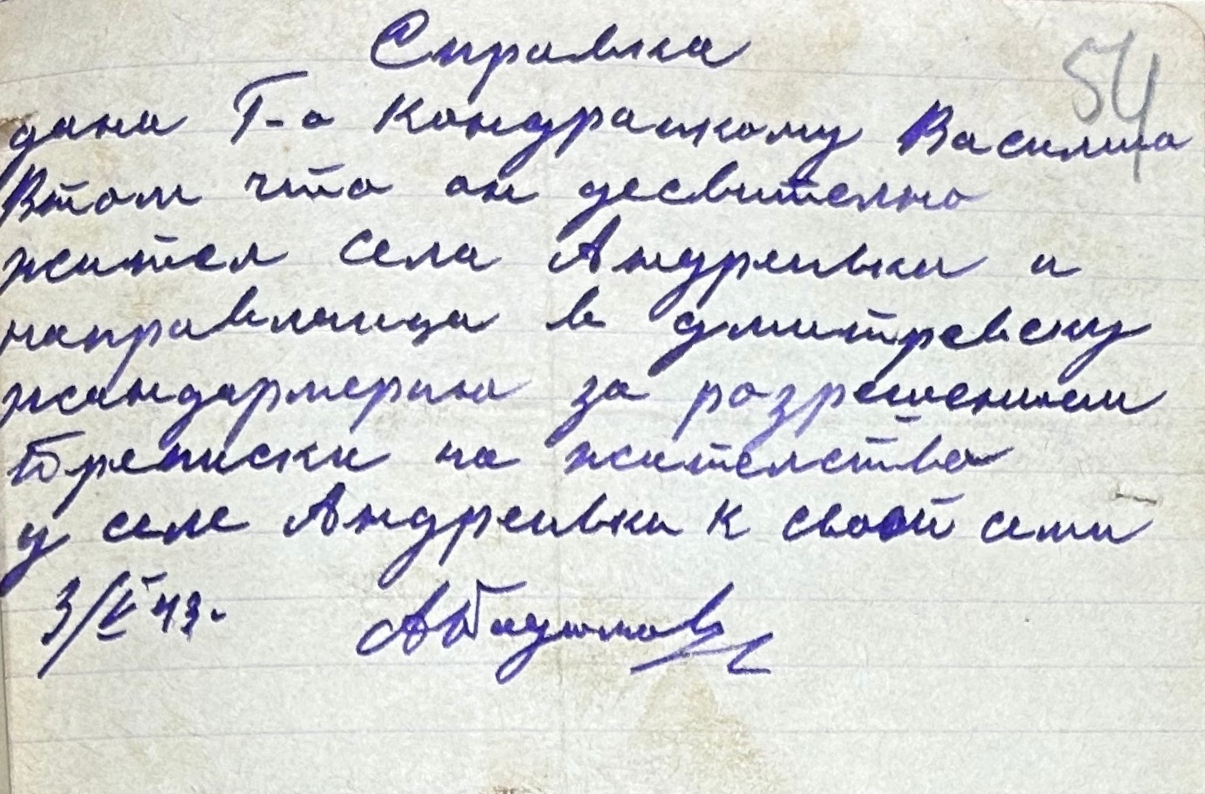 Справка
54
дана Г-о Кондрацкому Василию
Втом что он десвително
жител села Андреивки и
направлаица в дмитревску
жандармерию за разрешением
на жителство
у селе Андреивки к своей семи
3/V 43.